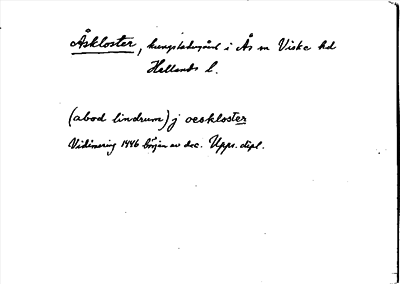 Åskloster, kungsladugård i Ås sn Viske hd
Hallands l.
(abod lindrum) j oeskloster
Vidimering 1446 början av dec. Upps. dipl.